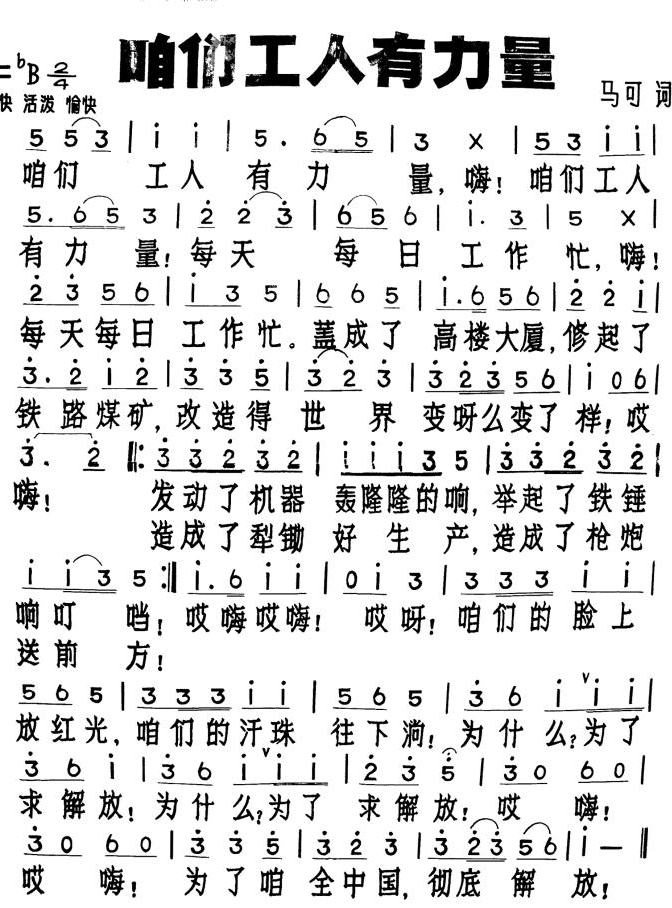 咱们工人有力量
=ᵇB 2/4
快 活泼 愉快
马可 词
5 5 3 | i i | 5. 6 5 | 3 x | 5 3 i i |
咱们 工人 有 力 量,嗨!咱们工人
5. 6 5 3 | 2̇ 2̇ 3̇ | 6 5 6 | i. 3 | 5 x |
有力 量!每天 每 日 工 作 忙,嗨!
2̇ 3̇ 5 6 | i 3 5 | 6 6 5 | i. 6 5 6 | 2̇ 2̇ i |
每天每日 工作忙。蓋成了 高楼大厦,修起了
3̇. 2̇ i 2̇ | 3̇ 3̇ 5̇ | 3̇ 2̇ 3̇ | 3̇ 2̇ 3̇ 5 6 | i 0 6 |
铁路煤矿,改造得 世 界 变呀么变了 样!哎
3̇. 2̇ ‖: 3̇ 3̇ 2̇ 3̇ 2̇ | i i i 3̇ 5 | 3̇ 3̇ 2̇ 3̇ 2̇ |
嗨! 发动了机器 轰隆隆的响,举起了铁锤
造成了犁锄 好 生 产,造成了枪炮
i i 3 5 :‖ i. 6 i i | 0 i 3 | 3 3 3 i i |
响叮 当!哎嗨哎嗨! 哎呀!咱们的脸上
送前 方!
5 6 5 | 3 3 3 i i | 5 6 5 | 3 6 i ᵛ i i |
放红光,咱们的汗珠 往下淌!为什 么?为了
3̇ 6 i | 3̇ 6 i ᵛ i i | 2̇ 3̇ 5̇ | 3̇ 0 6 0 |
求解放!为什 么?为了 求解放!哎 嗨!
3̇ 0 6 0 | 3̇ 3̇ 5̇ | 3̇ 2̇ 3̇ | 3̇ 2̇ 3̇ 5 6 | i — ‖
哎 嗨! 为了咱 全中国,彻底 解 放!